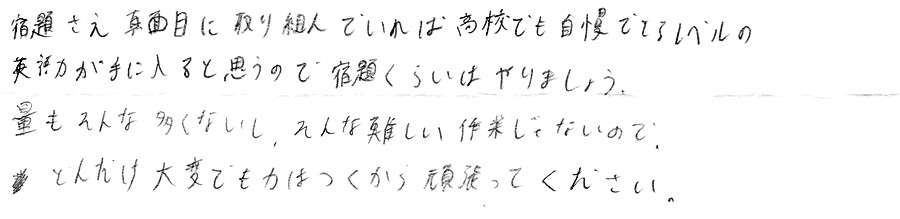 宿題さえ真面目に取り組んでいれば高校でも自慢できるレベルの
英語力が手に入ると思うので宿題くらいはやりましょう.
量もそんな多くないし,そんな難しい作業じゃないので.
どんだけ大変でも力はつくから頑張ってください。